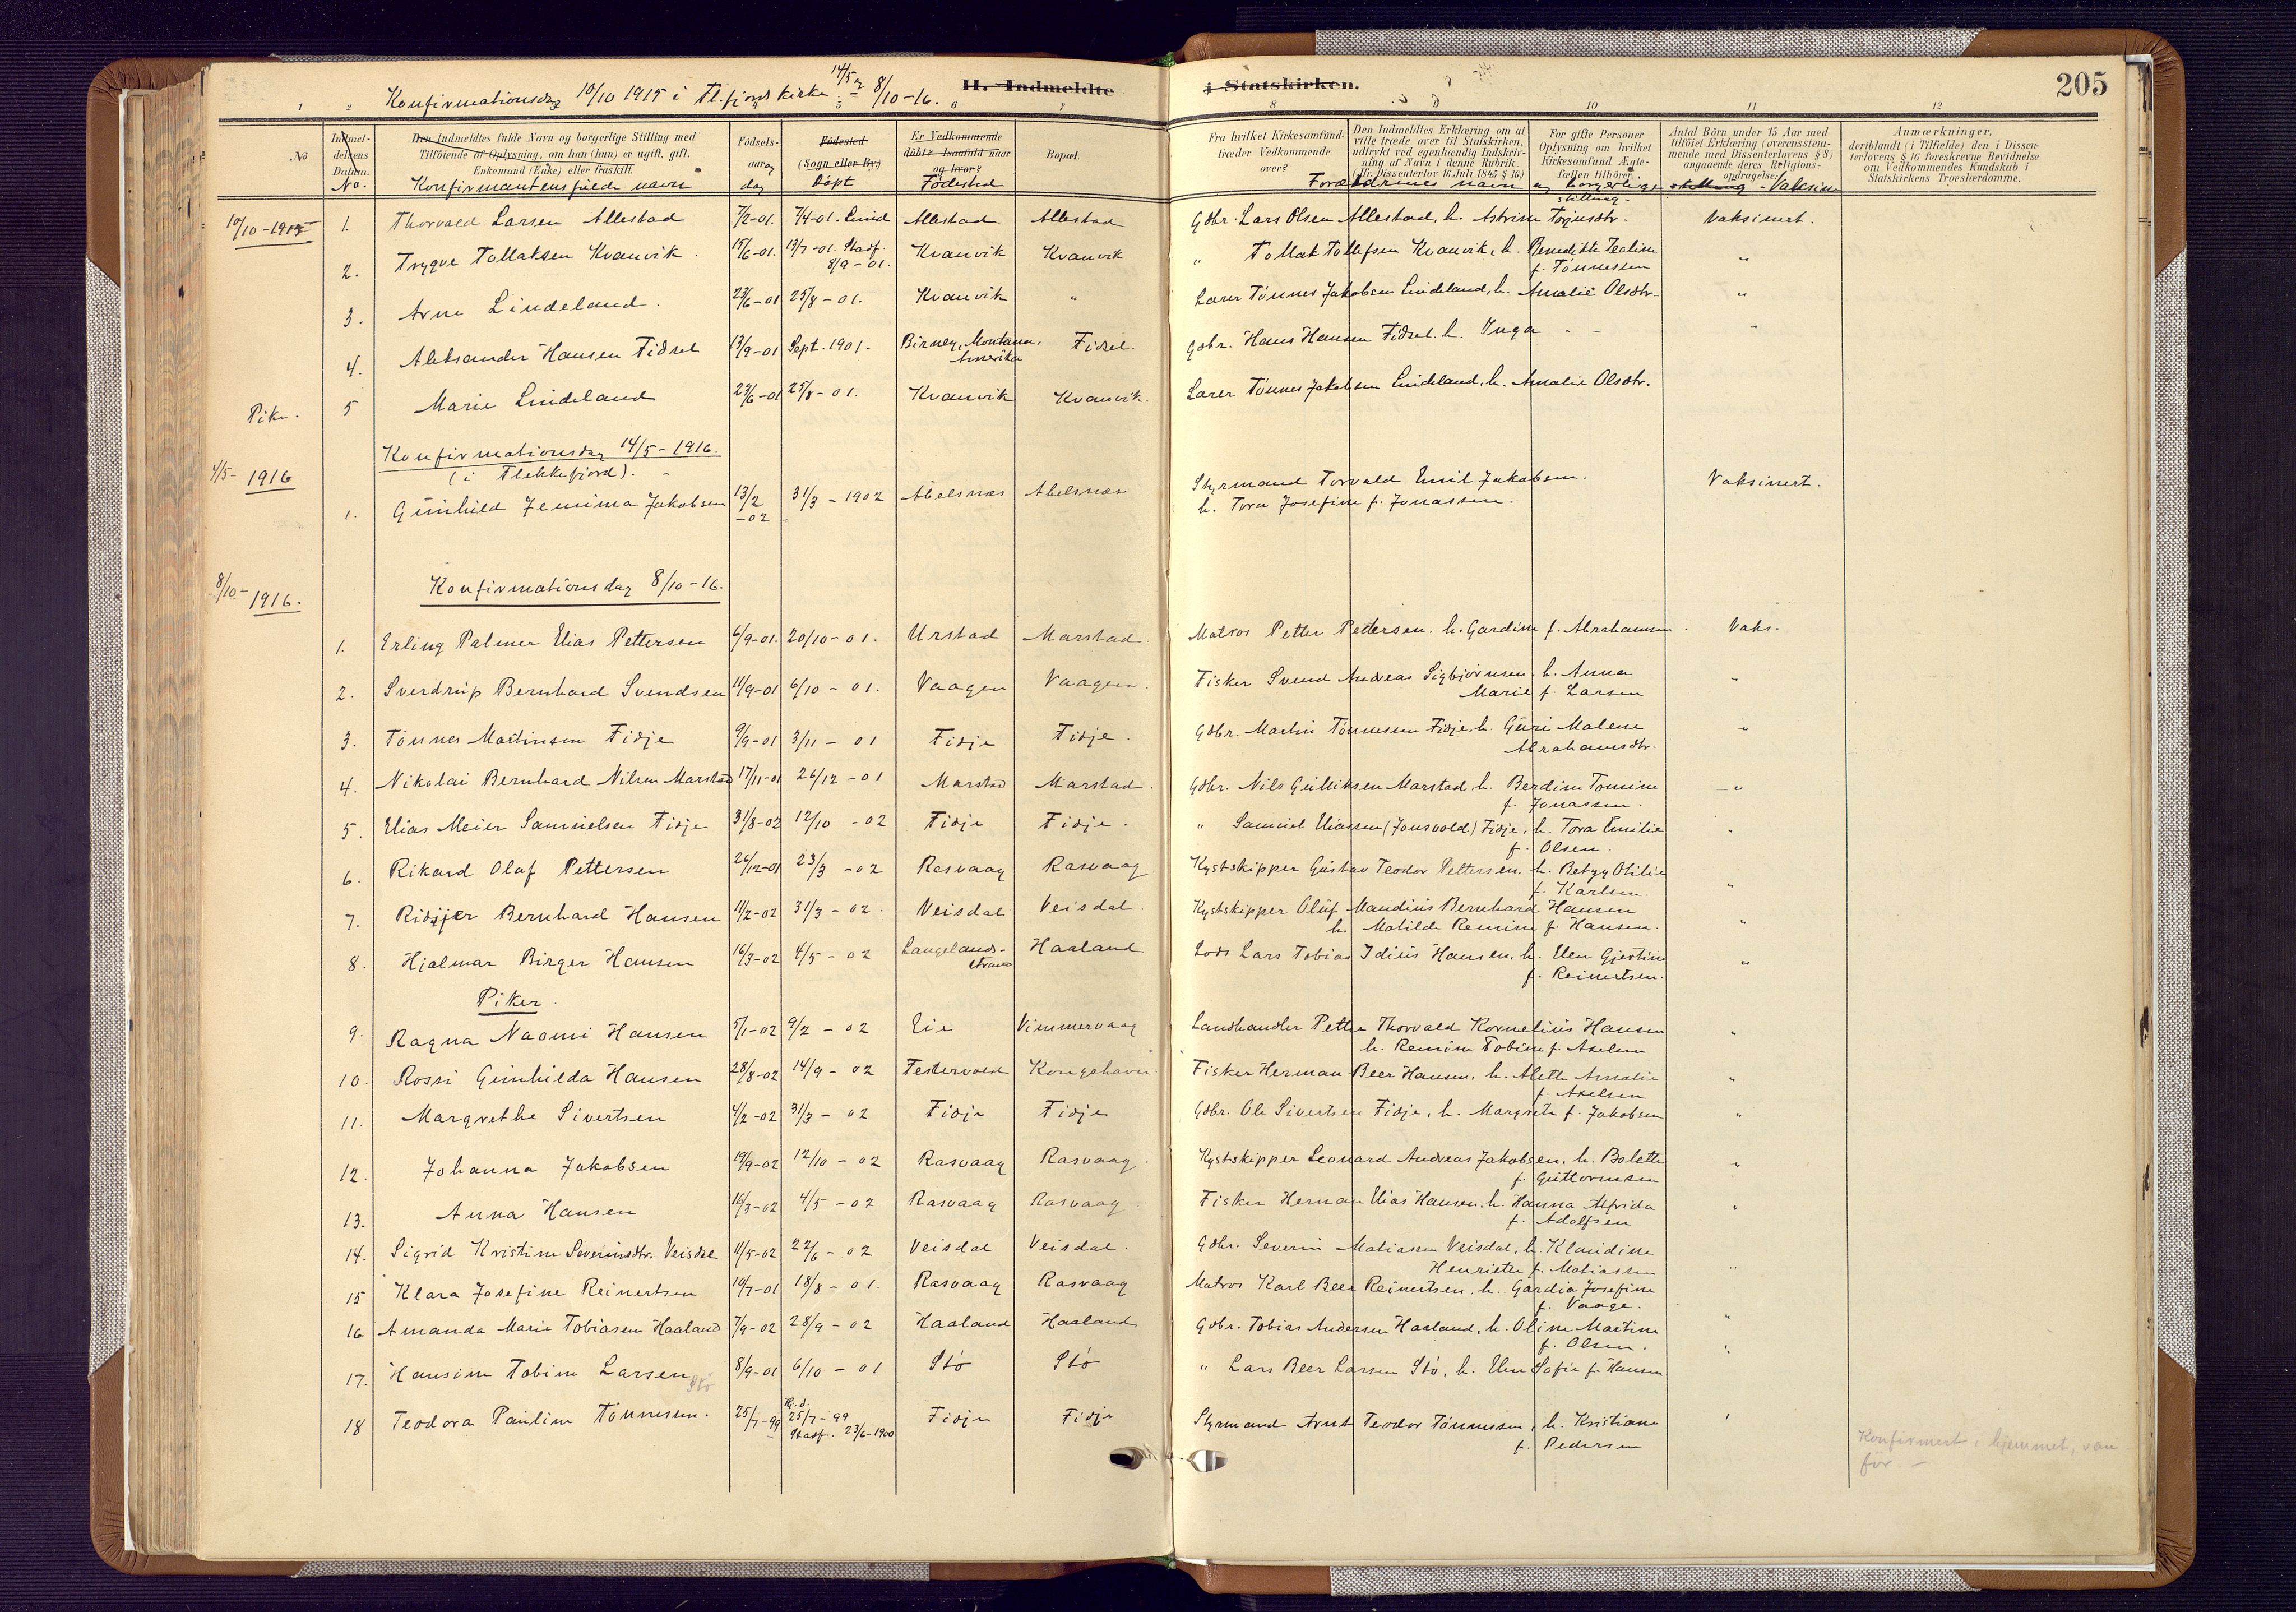 Konfirmationsdag 10/10 1915 i Fl.fjord kirke. 14/5 og 8/10-16. II. Indmeldte i Statskirken. 205
1 2 5 6 7 8 9 10 11 12
No
Indmeldelsens Datum. No.
Den Indmeldtes fulde Navn og borgerlige Stilling med Tilföiende af Oplysning, om han (hun) er ugift, gift, Enkemand (Enke) eller fraskilt. Konfirmantens fulde navn
Födsels- aar og dag
Födested (Sogn eller By.) Döpt
Er Vedkommende döbt, Isaafald naar og hvor? Födested
Bopæl.
Fra hvilket Kirkesamfund træder Vedkommende over?
Den Indmeldtes Erklæring om at ville træde over til Statskirken, udtrykt ved egenhændig Indskrivning af Navn i denne Rubrik. (Jfr. Dissenterlov 16 Juli 1845 § 16)
For gifte Personer Oplysning om hvilket Kirkesamfund Ægtefællen tilhörer.
Forældrenes navn og borgerlige stilling - Vaksine
Antal Börn under 15 Aar med tilföiet Erklæring (overensstemmende med Dissenterlovens § 8) angaaende deres Religionsopdragelse.
Anmærkninger, deriblandt (i Tilfælde) den i Dissenterlovens § 16 foreskrevne Bevidnelse om Vedkommendes Kundskab i Statskirkens Troeslærdomme.
10/10-1915 1. Thorvald Larsen Allestad 7/2-01. 7/4-01. Lund Allestad Allestad Gdbr. Lars Olsen Allestad, h. Astrine Torjusdtr. Vaksinert.
2. Trygve Tollaksen Kvanvik 15/6-01. 13/7-01. Stadf. 8/9-01. Kvanvik Kvanvik " Tollak Tollefsen Kvanvik, h. Benedikte Teoline f. Tönnessen "
3. Arne Lindeland. 23/6-01 25/8-01. Kvanvik " Lærer Tönnes Jakobsen Lindeland, h. Amalie Olsdtr. "
4. Aleksander Hansen Fidsel 13/9-01 Sept. 1901. Birney, Montana, Amerika Fidsel. Gdbr. Hans Hansen Fidsel. h. Inga - - "
Pike. 5 Marie Lindeland 23/6-01 25/8-01. Kvanvik Kvanvik. Lærer Tönnes Jakobsen Lindeland, h. Amalie Olsdtr.
Konfirmationsdag 14/5-1916.
(i Flekkefjord).
4/5-1916 1. Gunhild Jemima Jakobsen 13/2-02 31/3-1902 Abelsnæs Abelsnæs Styrmand Torvald Emil Jakobsen. h. Tora Josefine f. Jonassen. Vaksinert.
8/10-1916. Konfirmationsdag 8/10-16.
1. Erling Palmer Elias Pettersen 6/9-01. 20/10-01. Urstad Marstad. Matros Petter Pettersen. h. Gardine f. Abrahamsen. Vaks.
2. Sverdrup Bernhard Svendsen 11/9-01 6/10-01. Vaagen Vaagen. Fisker Svend Andreas Sigbjörnsen. h. Anna Marie f. Larsen "
3. Tönnes Martinsen Fidje 9/9-01 3/11-01 Fidje Fidje. Gdbr. Martin Tönnesen Fidje. h. Guri Malene Abrahamsdtr. "
4. Nikolai Bernhard Nilsen Marstad 17/11-01 26/12-01 Marstad Marstad. Gdbr. Nils Gulliksen Marstad, h. Berdine Tomine f. Jonassen. "
5. Elias Meier Samuelsen Fidje 31/8-02 12/10-02 Fidje Fidje. " Samuel Eliassen (Jonsvold) Fidje, h. Tora Emilie f. Olsen. "
6. Rikard Olaf Pettersen 26/12-01 23/3-02 Rasvaag Rasvaag Kystskipper Gustav Teodor Pettersen, h. Betzy Otilie f. Karlsen. "
7. Ridsjer Bernhard Hansen 11/2-02 31/3-02. Veisdal Veisdal. Kystskipper Oluf Mandius Bernhard Hansen h. Matilde Remine f. Hansen. "
8. Hjalmar Birger Hansen 16/3-02 4/5-02 Langelands- Haaland Lods Lars Tobias Idius Hansen, h. Elen Gjertine f. Reinertsen. "
Piker.
9. Ragna Naomi Hansen 5/1-02 9/2-02 Eie Vimmervaag Landhandler Petter Thorvald Kornelius Hansen h. Remine Tobine f. Axelsen "
10. Rossi Gunhilda Hansen 28/8-02 14/9-02 Festervold Kongshavn. Fisker Herman Beer Hansen, h. Aleth Amalie f. Axelsen "
11. Margrethe Sivertsen 4/2-02 31/3-02 Fidje Fidje Gdbr. Ole Sivertsen Fidje, h. Margrete f. Jakobsen "
12. Johanna Jakobsen 19/9-02 12/10-02 Rasvaag Rasvaag. Kystskipper Leonard Andreas Jakobsen, h. Bolette f. Guttormsen "
13. Anna Hansen 16/3-02 4/5-02 Rasvaag Rasvaag. Fisker Herman Elias Hansen. h. Hanna Alfrida f. Adolfsen "
14. Sigrid Kristine Severinsdtr. Veisdal 11/5-02 22/6-02 Veisdal Veisdal. Gdbr. Severin Matiassen Veisdal, h. Klaudine Henriette f. Matiassen "
15 Klara Josefine Reinertsen 10/7-01 18/8-01. Rasvaag Rasvaag Matros Karl Beer Reinertsen. h. Gardia Josefine f. Vaage. "
16 Amanda Marie Tobiassen Haaland 7/9-02 28/9-02 Haaland Haaland Gdbr. Tobias Andersen Haaland, h. Oline Martine f. Olsen. "
17. Hansine Tobine Larsen Stö 8/9-01 6/10-01 Stö Stö " Lars Beer Larsen Stö, h. Elen Sofie f. Hansen
18 Teodora Pauline Tönnesen. 25/7-99 Hj.d. 25/7-99 Stadf. 23/6-1900 Fidje Fidje Styrmand Arnt Teodor Tönnessen, h. Kristiane f. Pedersen " Konfirmert i hjemmet, vanför. -